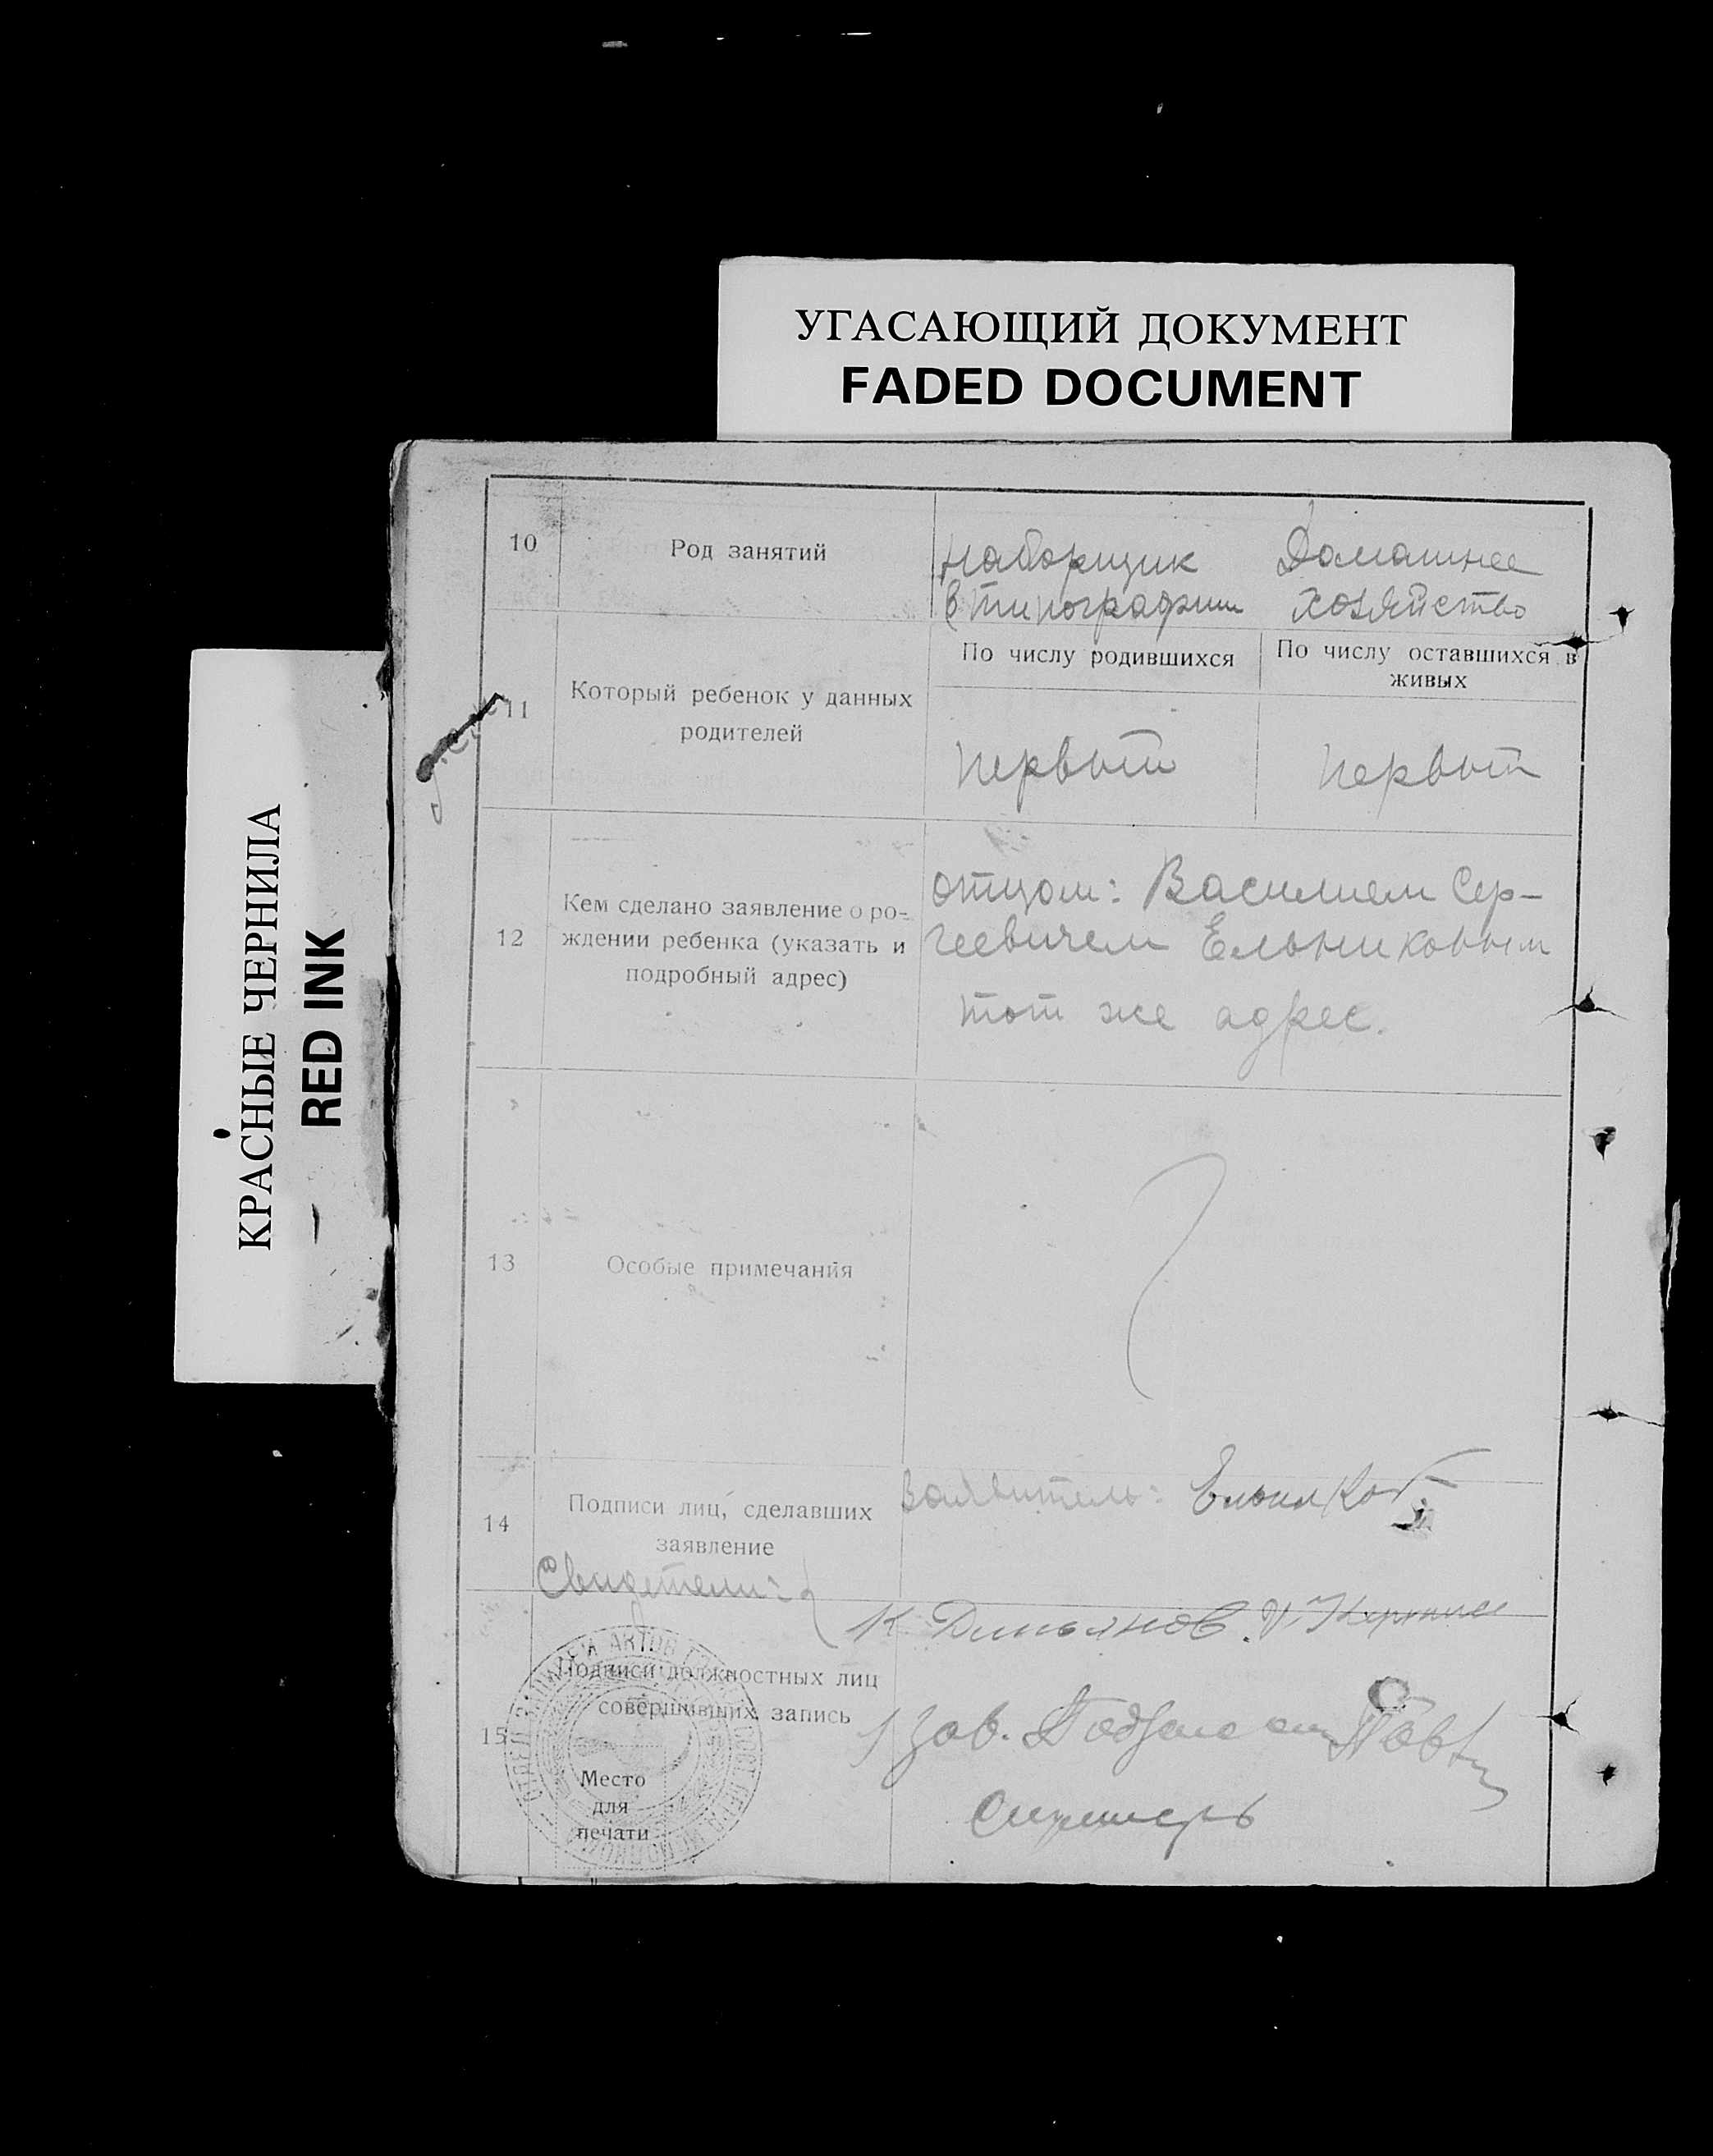 УГАСАЮЩИЙ ДОКУМЕНТ
FADED DOCUMENT
КРАСНЫЕ ЧЕРНИЛА
RED INK
10 Род занятий
наборщик
в типографии
Домашнее
хозяйство
11 Который ребенок у данных
родителей
По числу родившихся
По числу оставшихся в
живых
первый
первый
12 Кем сделано заявление о ро-
ждении ребенка (указать и
подробный адрес)
отцом: Василием Сер-
геевичем Ельниковым
тот же адрес.
13 Особые примечания
14 Подписи лиц, сделавших
заявление
заявитель:
Свидетели:
К
15 Подписи должностных лиц
совершивших запись
Зав.
Место
для
печати